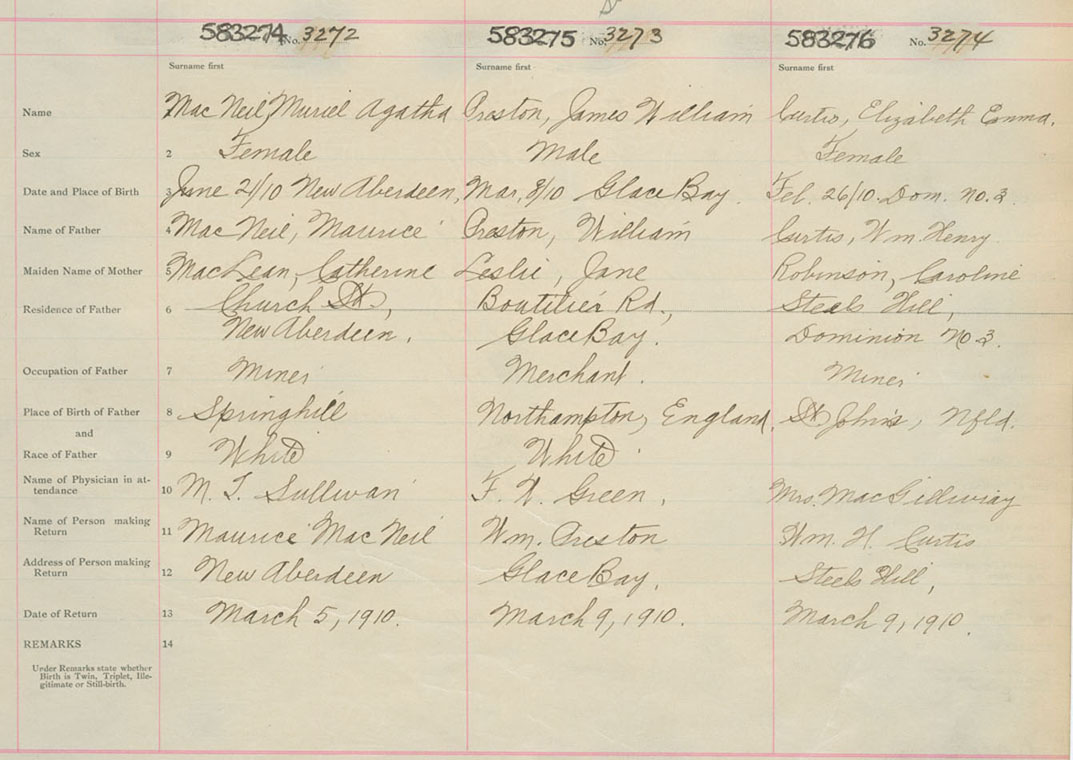 583274 No. 3272 583275 No. 3273 583276 No. 3274
Surname first Surname first Surname first
Name MacNeil, Muriel Agatha Preston, James William Curtis, Elizabeth Emma.
Sex 2 Female Male Female
Date and Place of Birth 3 June 21/10 New Aberdeen, Mar, 8/10 Glace Bay. Feb. 26/10. Dom. No. 3.
Name of Father 4 MacNeil, Maurice Preston, William Curtis, Wm. Henry.
Maiden Name of Mother 5 MacLean, Catherine Leslie, Jane Robinson, Caroline
Residence of Father 6 Church St., Boutilier Rd., Steels Hill,
New Aberdeen. Glace Bay. Dominion No 3.
Occupation of Father 7 Miner Merchant. Miner
Place of Birth of Father 8 Springhill Northampton, England. St John's, Nfld.
and
Race of Father 9 White White
Name of Physician in at-
tendance 10 M. T. Sullivan F. W. Green, Mrs. MacGillivray
Name of Person making
Return 11 Maurice MacNeil Wm. Preston Wm. H. Curtis
Address of Person making
Return 12 New Aberdeen Glace Bay, Steels Hill,
Date of Return 13 March 5, 1910. March 9, 1910. March 9, 1910.
REMARKS 14
Under Remarks state whether
Birth is Twin, Triplet, Ille-
gitimate or Still-birth.